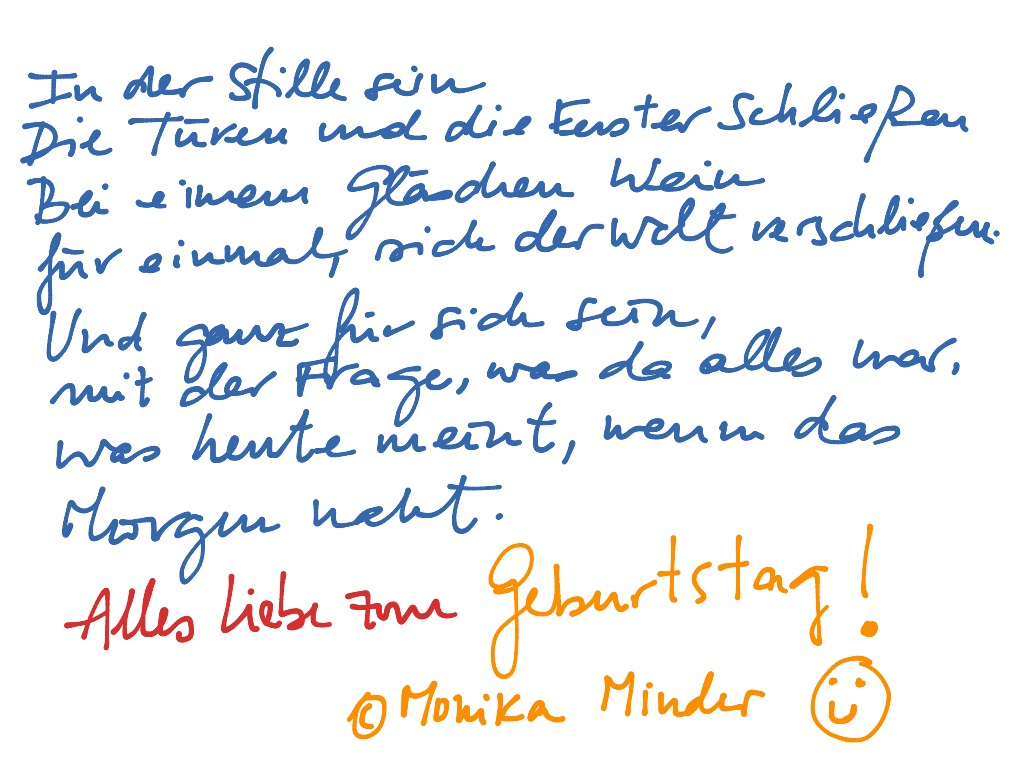 In der Stille sein
Die Türen und die Fenster schließen
Bei einem Gläschen Wein
für einmal, sich der Welt verschließen.
Und ganz für sich sein,
mit der Frage, was da alles war,
was heute meint, wenn das
Morgen naht.
Alles Liebe zum Geburtstag!
© Monika Minder